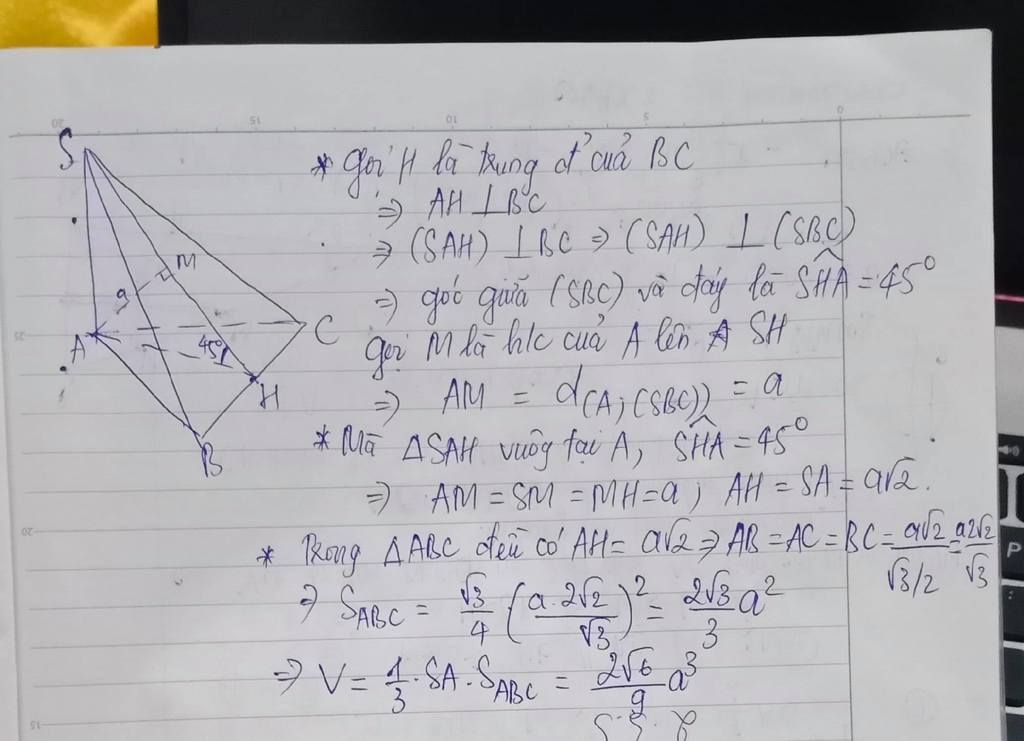 S
M
a
A
45°
C
H
B
* Gọi H là trung đ' của BC
⇒ AH ⊥ BC
⇒ (SAH) ⊥ BC ⇒ (SAH) ⊥ (SBC)
⇒ góc giữa (SBC) và đáy là \widehat{SHA} = 45°
gọi M là h/c của A lên SH
⇒ AM = d(A;(SBC)) = a
* Mà ΔSAH vuôg tại A, \widehat{SHA} = 45°
⇒ AM = SM = MH = a; AH = SA = a√2.
* Trong ΔABC đều có AH = a√2 ⇒ AB = AC = BC = \frac{a√2}{√3/2} = \frac{a2√2}{√3}
⇒ S_{ABC} = \frac{√3}{4} (\frac{a.2√2}{√3})^2 = \frac{2√3}{3} a^2
⇒ V = \frac{1}{3}.SA.S_{ABC} = \frac{2√6}{9} a^3
20
15
10
5
0
25
20
15
P